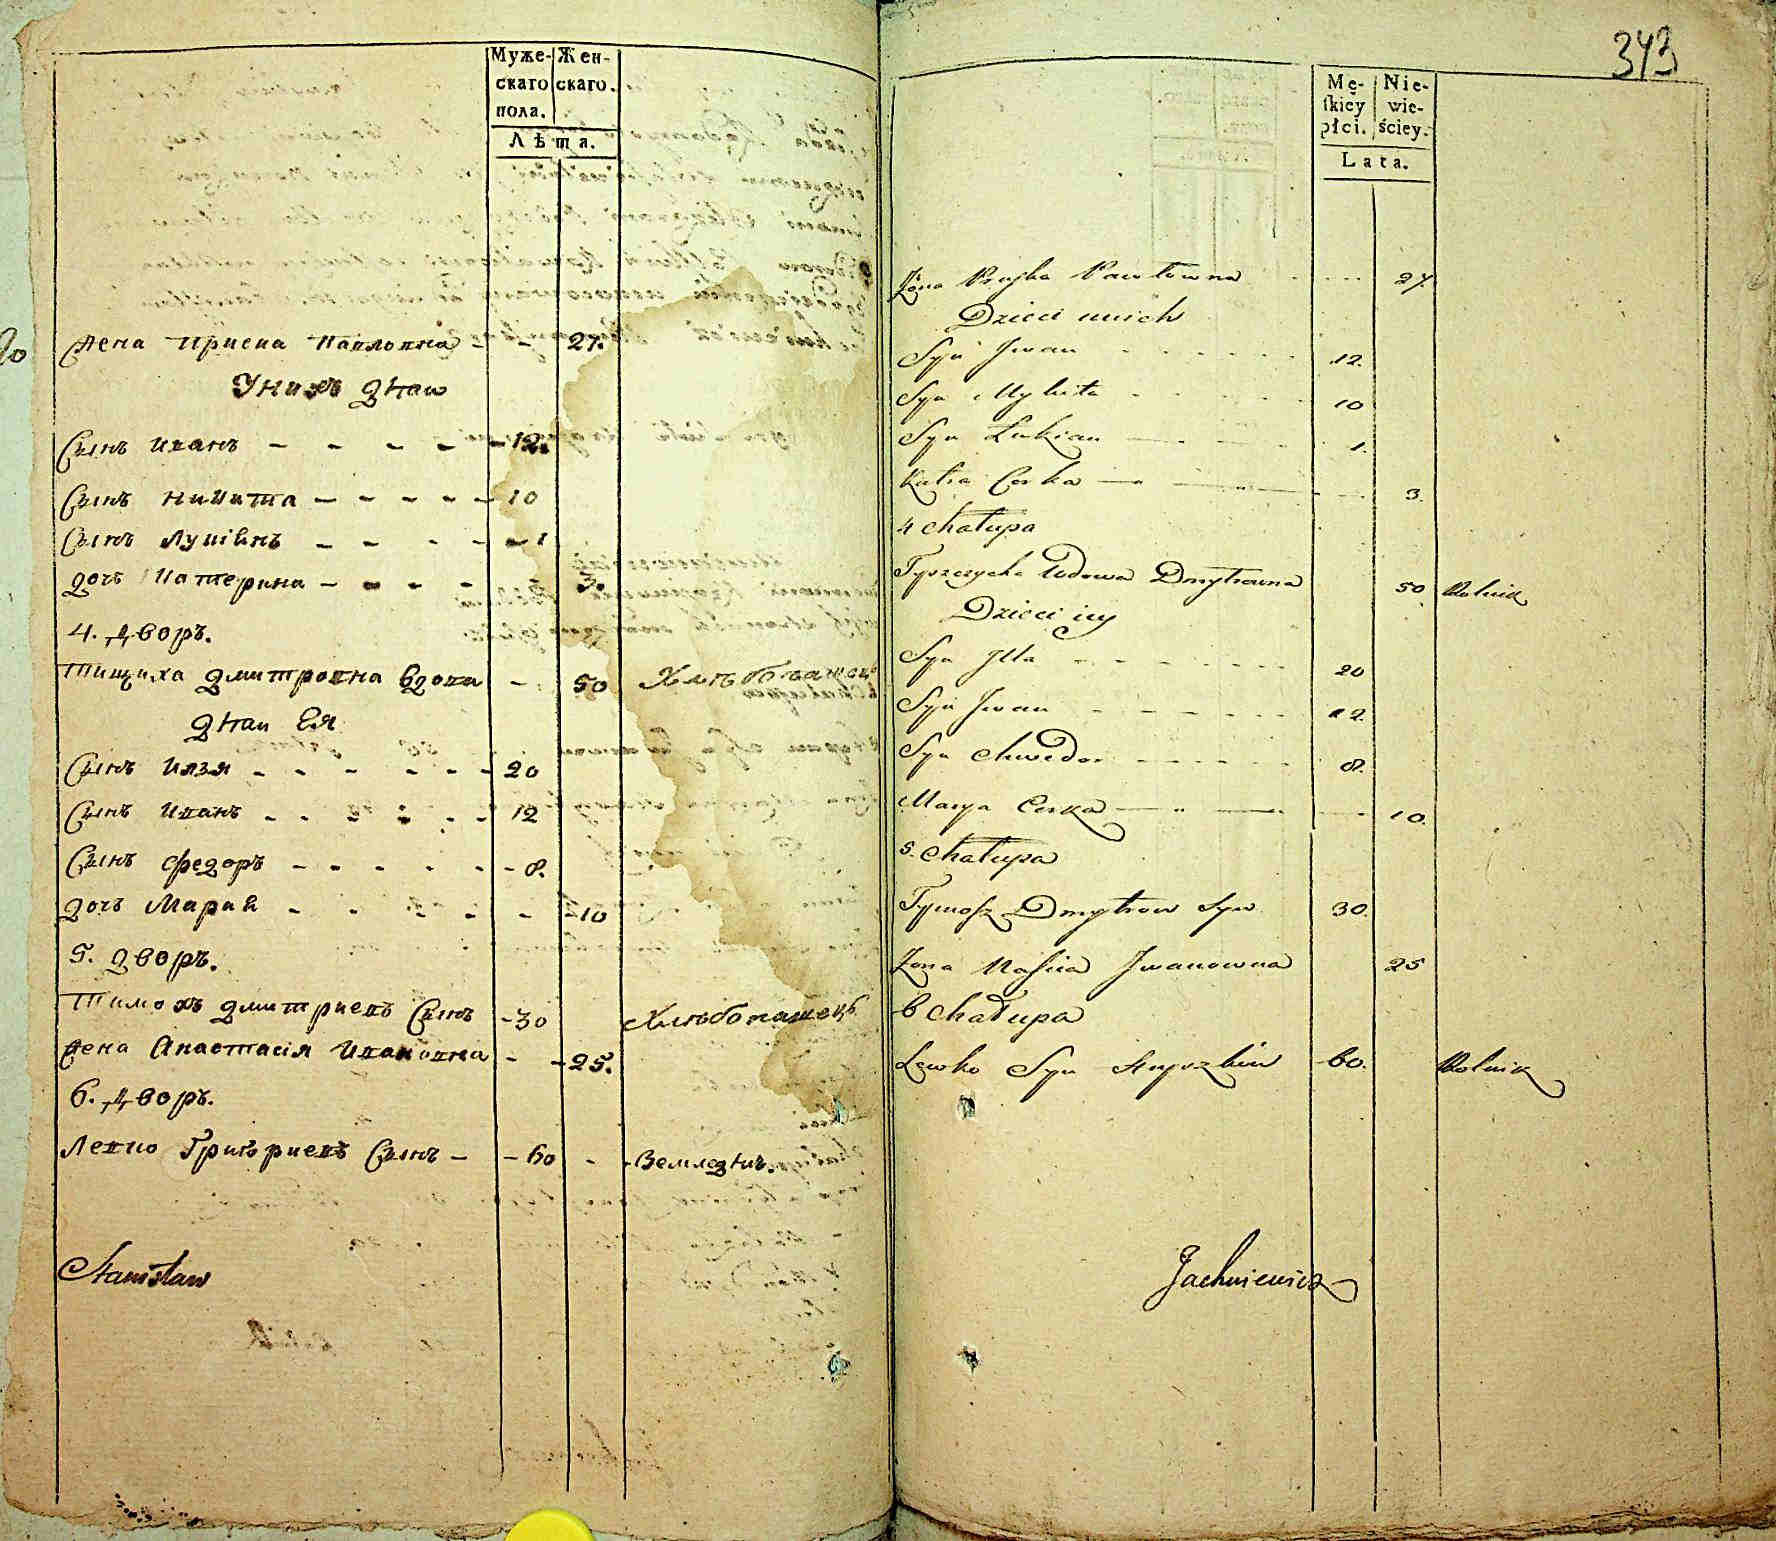 Муже- Жен-
скаго скаго.
пола.
Лѣта.
Жена Ирина Павловна - - 27.
У нихъ дѣти
Сынъ Иванъ - - - - - 12.
Сынъ Никита - - - - - 10
Сынъ Лукіянъ - - - - 1
дочь Катерина - - - - 3.
4. дворъ.
Тищиха Дмитровна вдова - 50 Хлѣбопашецъ
дѣти Ея
Сынъ Илья - - - - - - 20
Сынъ Иванъ - - - - - 12
Сынъ Федоръ - - - - - 8.
дочь Марія - - - - - 10
5. дворъ.
Тимохъ Дмитриевъ Сынъ - 30 Хлѣбопашецъ
Жена Анастасія Ивановна - - 25.
6. дворъ.
Левко Григориевъ Сынъ - - 60 - Земледѣлъ.
Stanisław
343
Mę- Nie-
skiey wie-
płci. ściey.
Lata.
Żona Pawłowna 27
Dzieci u nich
Syn Jwan 12.
Syn Mykita 10
Syn Łukian 1.
Katra Corka 3.
4 chałupa
Tyszczycha Wdowa Dmytrowna 50 Rolnik
Dzieci iey
Syn Illa 20
Syn Jwan 12.
Syn Chwedor 8.
Marya Corka 10.
5. chałupa
Tymosz Dmytrow Syn 30.
Żona Nascia Jwanowna 25
6 chałupa
Lewko Syn 60. Rolnik
Jachniewicz